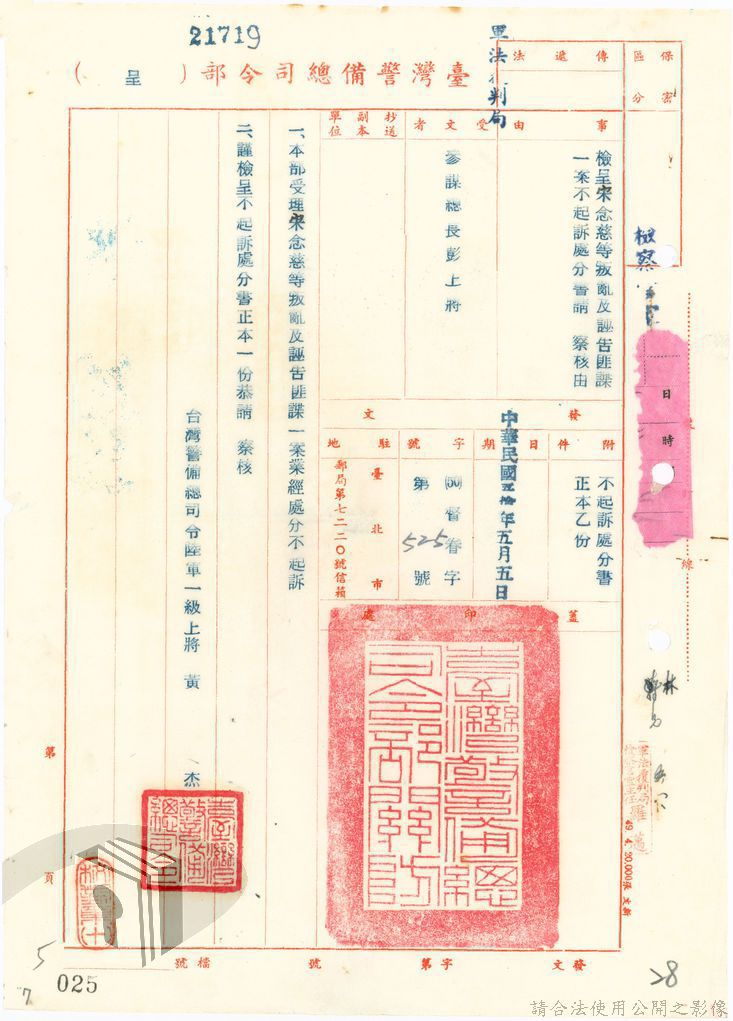 21719
臺灣警備總司令部（呈）
軍法覆判局
保密
區分
傳遞
法
事由
檢呈宋念慈等叛亂及誣告匪諜
一案不起訴處分書請 察核由
受文者
參謀總長彭上將
抄送
副本
單位
發文
附件
不起訴處分書
正本乙份
日期
中華民國五拾年五月五日
字號
(50)督眷字
第525號
駐地
臺北市
郵局第七二二〇號信箱
蓋印處
臺灣警備總司令部關防
一、本部受理宋念慈等叛亂及誣告匪諜一案業經處分不起訴
二、謹檢呈不起訴處分書正本一份恭請 察核
台灣警備總司令陸軍一級上將 黃 杰
臺灣警備總司令
檢察
日
時
線
林
49.4.30,000張
第
頁
發文
字第
號
檔號
5
7
025
28
請合法使用公開之影像